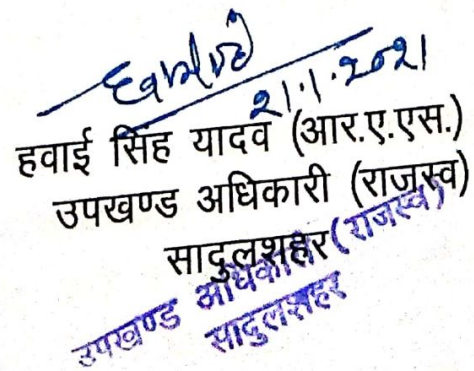 21.1.2021
हवाई सिंह यादव (आर.ए.एस.)
उपखण्ड अधिकारी (राजस्व)
सादुलशहर
उपखण्ड अधिकारी (राजस्व)
सादुलशहर